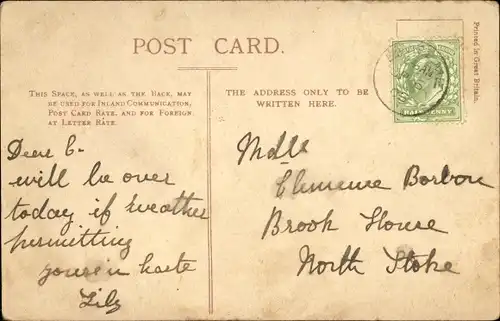 POST CARD.
THIS SPACE, AS WELL AS THE BACK, MAY
BE USED FOR INLAND COMMUNICATION,
POST CARD RATE, AND FOR FOREIGN
AT LETTER RATE.
THE ADDRESS ONLY TO BE
WRITTEN HERE.
Printed in Great Britain.
HALFPENNY
Dear C-
will be over
today if weather
permitting
yours in haste
Lily
Mdlle
Clemence
Brook House
North Stoke